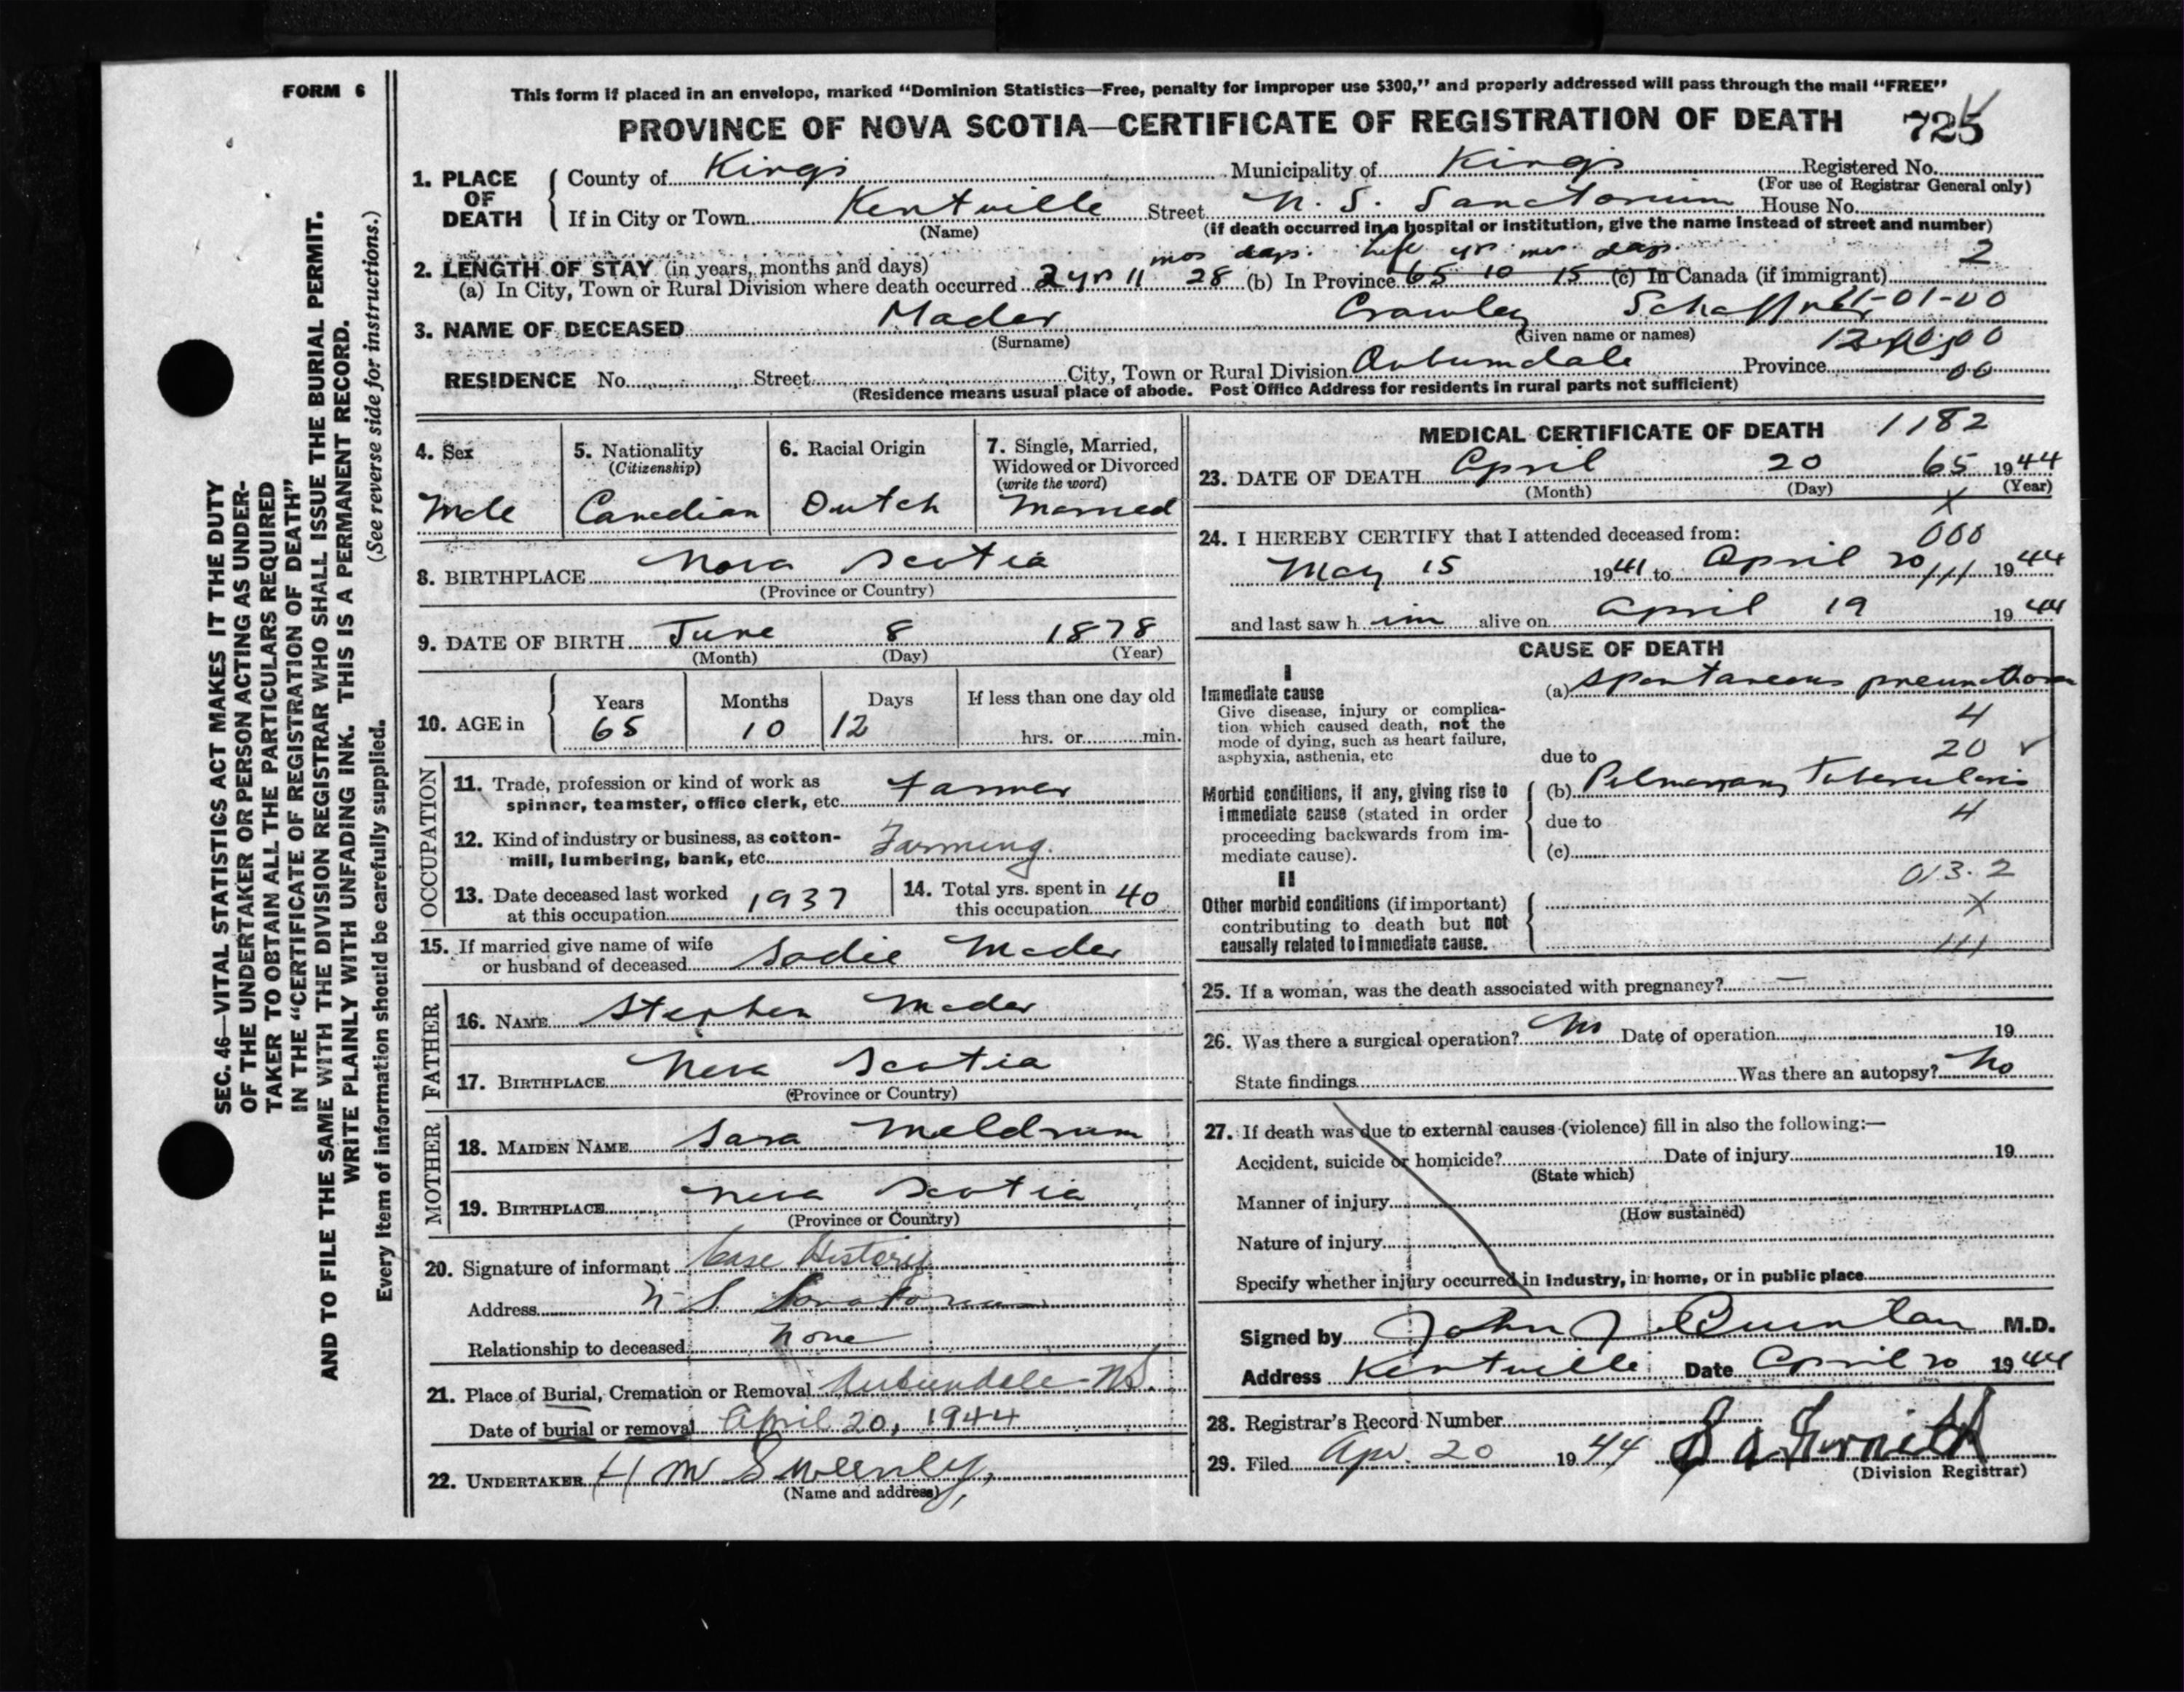 FORM 6
This form if placed in an envelope, marked “Dominion Statistics—Free, penalty for improper use $300,” and properly addressed will pass through the mail “FREE”
PROVINCE OF NOVA SCOTIA—CERTIFICATE OF REGISTRATION OF DEATH 725
1. PLACE OF DEATH
County of Kings Municipality of Kings Registered No.
(For use of Registrar General only)
If in City or Town Kentville Street N. S. Sanctorium House No.
(Name) (If death occurred in a hospital or institution, give the name instead of street and number)
2. LENGTH OF STAY (in years, months and days) mos days. life yr mos days. 2
(a) In City, Town or Rural Division where death occurred 2 yrs 11 28 (b) In Province 65 10 15 (c) In Canada (if immigrant)
3. NAME OF DECEASED Mader Crawley Schaffner 11-01-00
(Surname) (Given name or names)
RESIDENCE No. Street City, Town or Rural Division Auburndale Province 00
(Residence means usual place of abode. Post Office Address for residents in rural parts not sufficient)
4. Sex
Male
5. Nationality
(Citizenship)
Canadian
6. Racial Origin
Dutch
7. Single, Married,
Widowed or Divorced
(write the word)
Married
8. BIRTHPLACE Nova Scotia
(Province or Country)
9. DATE OF BIRTH June 8 1878
(Month) (Day) (Year)
10. AGE in
Years Months Days If less than one day old
65 10 12 hrs. or min.
OCCUPATION
11. Trade, profession or kind of work as
spinner, teamster, office clerk, etc. Farmer
12. Kind of industry or business, as cotton-
mill, lumbering, bank, etc. Farming.
13. Date deceased last worked
at this occupation 1937
14. Total yrs. spent in
this occupation 40
15. If married give name of wife
or husband of deceased Sadie Mader
FATHER
16. NAME Stephen Mader
17. BIRTHPLACE Nova Scotia
(Province or Country)
MOTHER
18. MAIDEN NAME Sara Meldrum
19. BIRTHPLACE Nova Scotia
(Province or Country)
20. Signature of informant Case History
Address N S Sanatorium
Relationship to deceased None
21. Place of Burial, Cremation or Removal Auburndale N.S.
Date of burial or removal April 20, 1944
22. UNDERTAKER H M Sweeny,
(Name and address)
MEDICAL CERTIFICATE OF DEATH 1182
23. DATE OF DEATH April 20 65 1944
(Month) (Day) (Year)
X
24. I HEREBY CERTIFY that I attended deceased from: 000
May 15 1941 to April 20 111 1944
and last saw h im alive on April 19 1944
CAUSE OF DEATH
I
Immediate cause
Give disease, injury or complica-
tion which caused death, not the
mode of dying, such as heart failure,
asphyxia, asthenia, etc
(a) Spontaneous pneumothorax
4
20
due to
Morbid conditions, if any, giving rise to
immediate cause (stated in order
proceeding backwards from im-
mediate cause).
(b) Pulmonary Tuberculosis
due to 4
(c)
013.2
II
Other morbid conditions (if important)
contributing to death but not
causally related to immediate cause.
X
111
25. If a woman, was the death associated with pregnancy? —
26. Was there a surgical operation? No Date of operation 19
State findings Was there an autopsy? No
27. If death was due to external causes (violence) fill in also the following:—
Accident, suicide or homicide? Date of injury 19
(State which)
Manner of injury
(How sustained)
Nature of injury
Specify whether injury occurred in industry, in home, or in public place
Signed by John J Quinlan M.D.
Address Kentville Date April 20 1944
28. Registrar's Record Number
29. Filed Apr. 20 1944
(Division Registrar)
SEC. 46—VITAL STATISTICS ACT MAKES IT THE DUTY
OF THE UNDERTAKER OR PERSON ACTING AS UNDER-
TAKER TO OBTAIN ALL THE PARTICULARS REQUIRED
IN THE “CERTIFICATE OF REGISTRATION OF DEATH”
AND TO FILE THE SAME WITH THE DIVISION REGISTRAR WHO SHALL ISSUE THE BURIAL PERMIT.
WRITE PLAINLY WITH UNFADING INK. THIS IS A PERMANENT RECORD.
(See reverse side for instructions.)
Every item of information should be carefully supplied.